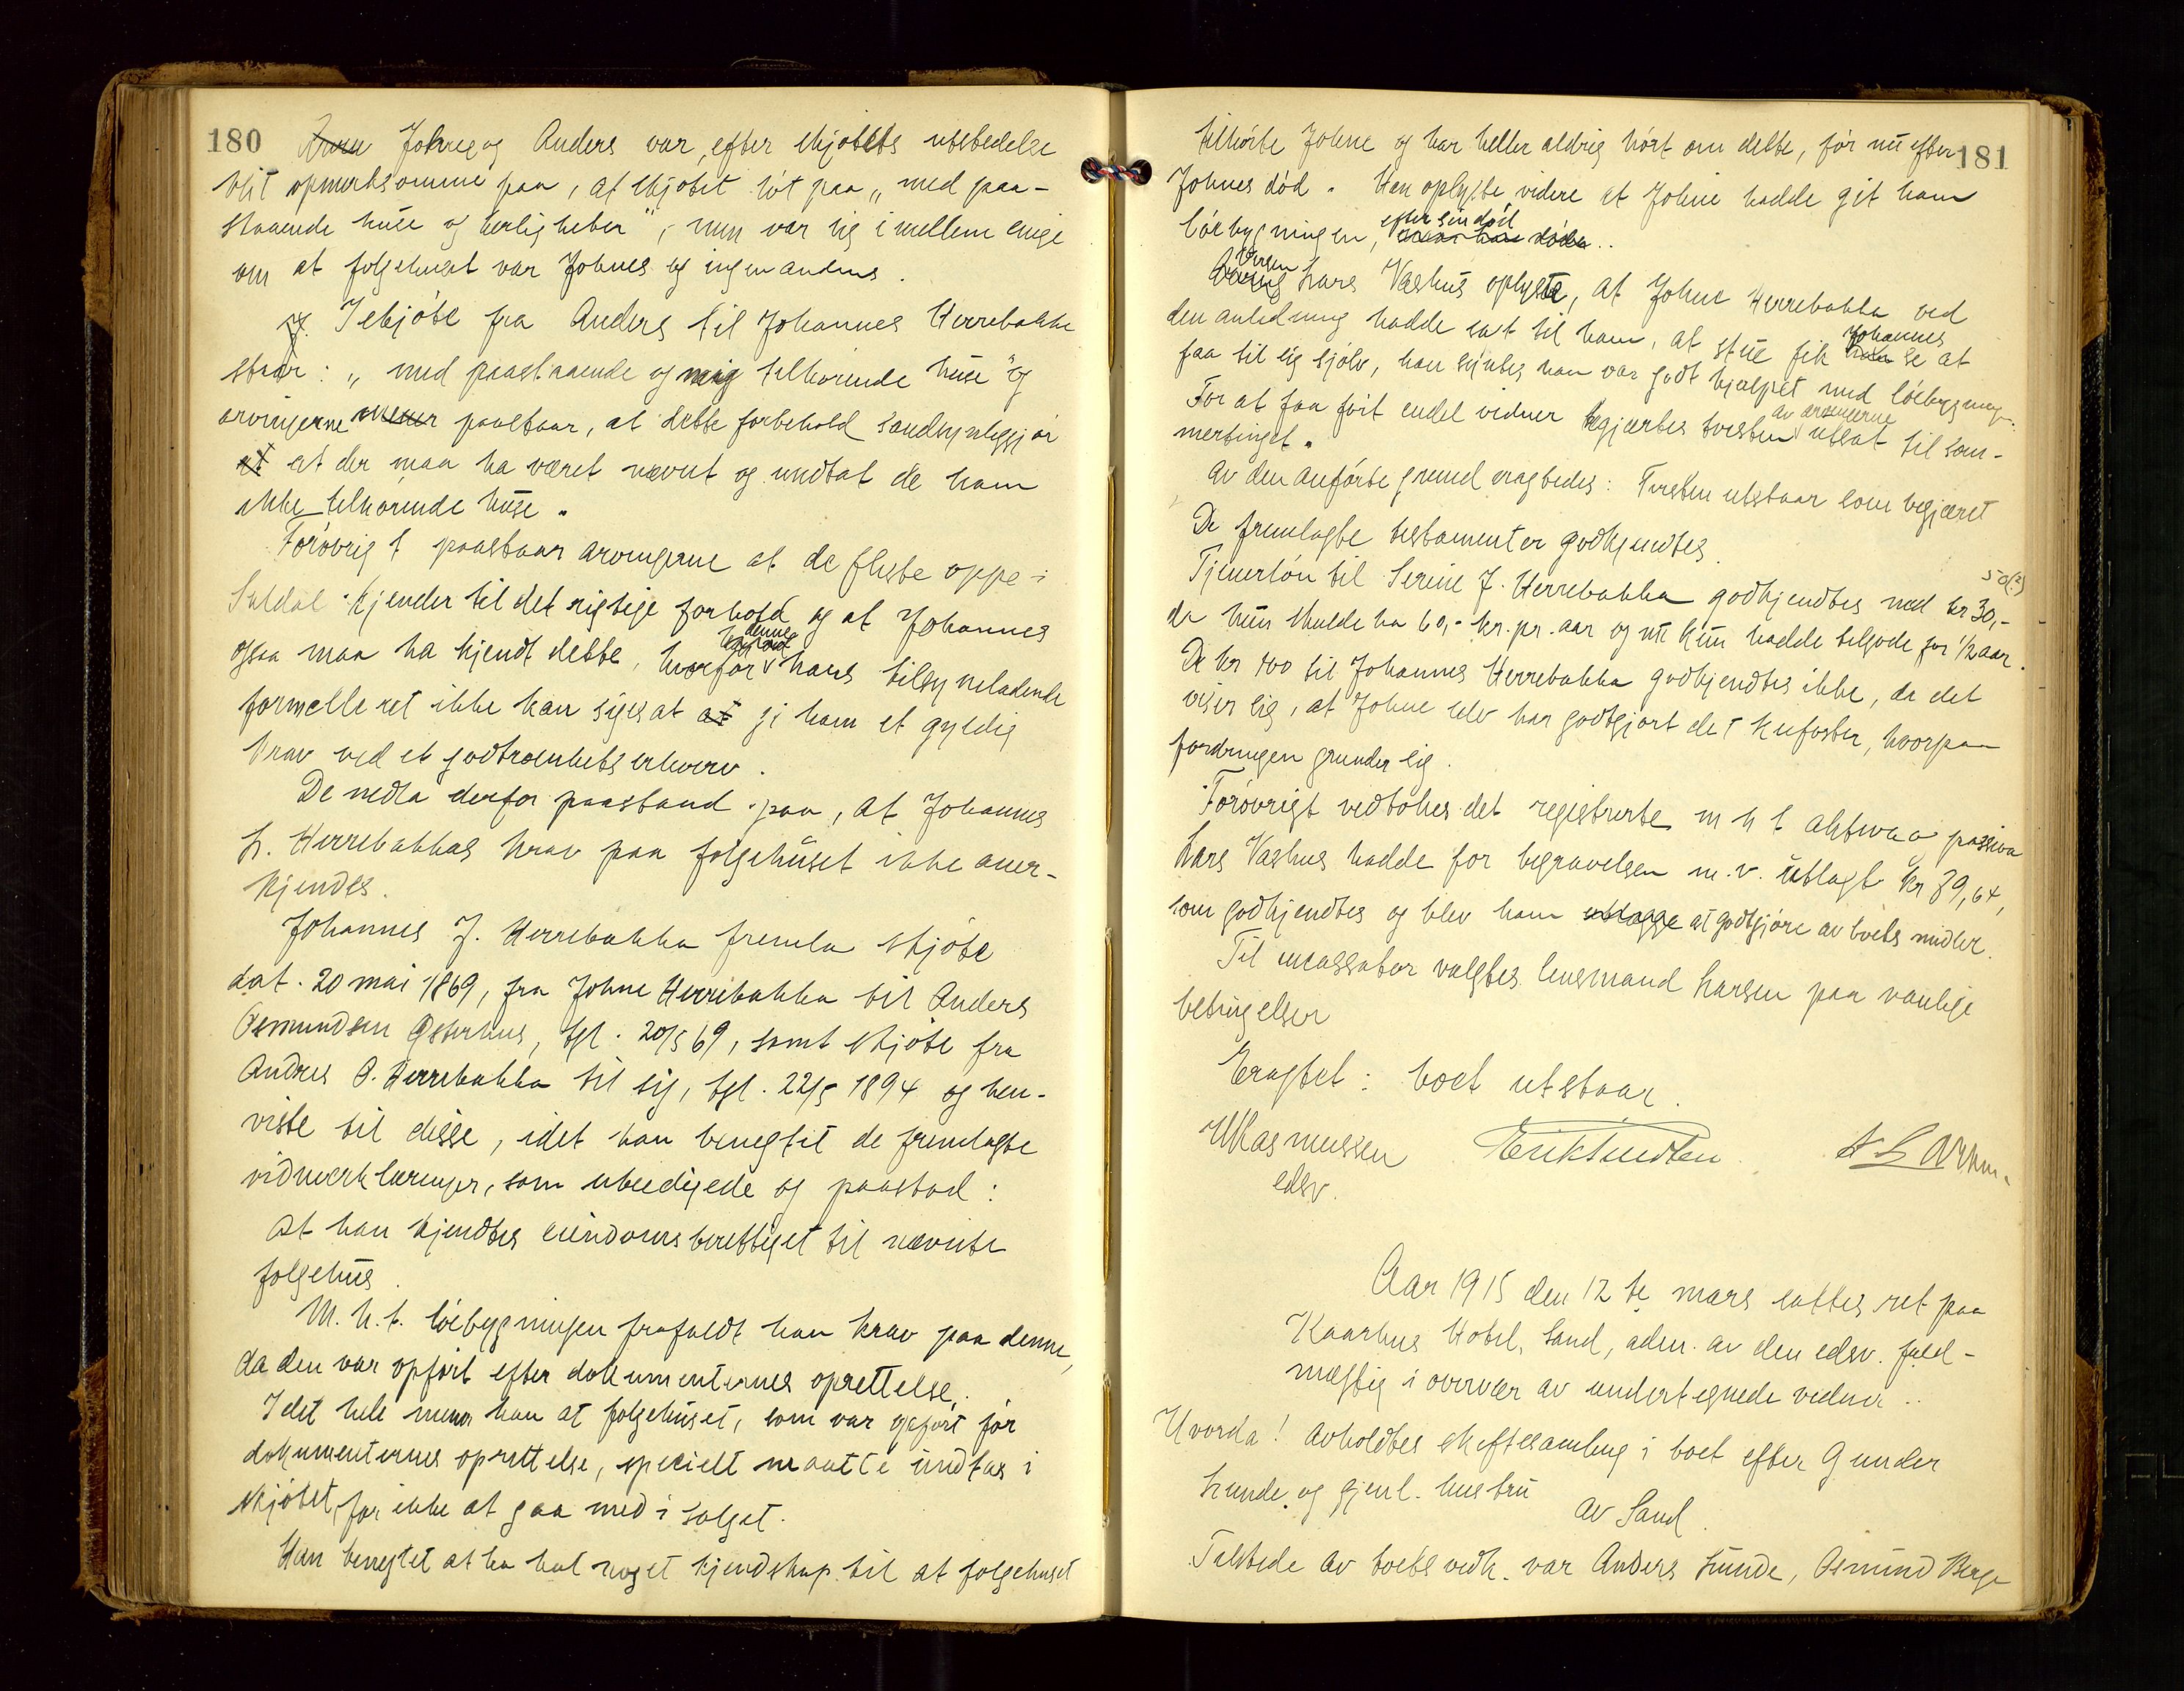 180
Johne og Anders var, efter skjötets utstedelse
blit opmerksomme paa, at skjötet löt paa "med paa-
staaende huse og herligheter", men var sig imellem enige
om at folgehuset var Johnes og ingen andens.
I skjöte fra Anders til Johannes Herrebakka
staar: "med paastaaende og mig tilhörende huse" og
arvingerne paastaar, at dette forbehold sandsynliggjör
at der maa ha været nævnt og undtat de ham
ikke tilhörende huse.
Forövrigt paastaar arvingerne at de fleste oppe i
Suldal kjender til det rigtige forhold og at Johannes
ogsaa maa ha kjendt dette, hvorfor denne hans tilsyneladende
formelle ret ikke kan siges at gi ham et gyldig
krav ved et godtroenhetserhverv.
De nedla derfor paastand paa, at Johannes
J. Herrebakkas krav paa folgehuset ikke aner-
kjendes.
Johannes J. Herrebakka fremla skjöte
dat. 20 mai 1869, fra Johne Herrebakka til Anders
Osmundsen Østerhus, tgl. 20/5 69, samt skjöte fra
Andres O. Herrebakka til sig, tgl. 22/5 1894 og hen-
viste til disse, idet han benegtet de fremlagte
vidneerklæringer, som ubeedigede og paastod:
At han kjendtes eiendomsberettiget til nævnte
folgehus.
M.h.t. löebygningen frafaldt han krav paa denne,
da den var opfört efter dokumenternes oprettelse.
I det hele mener han at folgehuset, som var opfört för
dokumenternes oprettelse, specielt maatte undtas i
skjötet, for ikke at gaa med i salget.
Han benegtet at ha hat noget kjendskap til at folgehuset
181
tilhörte Johne og har heller aldrig hört om dette, för nu efter
Johnes död. Han oplyste videre at Johne hadde git ham
löebygningen, efter sin död
Lars Vashus oplyste, at Johne Herrebakka ved
den anledning hadde sat til ham, at fik Johannes se at
faa til sig sjölv, han syntes han var godt hjælpet med löebygningen.
For at faa fört endel vidner begjærtes tvisten av arvingerne utsat til som-
mertinget.
Av den anförte grund eragtedes: Tvisten utstaar som begjæret
De fremlagte testamenter godkjendtes.
50(?)
Tjenerlön til Serine J. Herrebakka godkjendtes med kr 30,-
da hun skulde ha 60,- kr. pr. aar og nu kun hadde tilgode for 1/2 aar.
De kr 100 til Johannes Herrebakka godkjendtes ikke, da det
viser sig, at Johne selv har godtgjort det kufoster, hvorpaa
fordringen grunder sig.
Forövrigt vedtokes det registrerte m h t aktiva o passiva
Lars Vashus hadde for begravelsen m.v. utlagt kr 89,64,
som godkjendtes og blev ham at godtgjöre av boets midler.
Til incassator valgtes lensmand Larsen paa vanlige
betingelser
Eragtet: boet utstaar.
Rasmussen
edsv.
Aar 1915 den 12 te mars sattes ret paa
Kaarhus Hotel, Sand, adm. av den edsv. fuld-
mægtig i overvær av undertegnede vidner..
Hvorda! Avholdtes skiftesamling i boet efter Gunder
Lunde og gjenl. hustru
av Sand.
Tilstede av boets vedk. var Anders Lunde, Osmund Berge